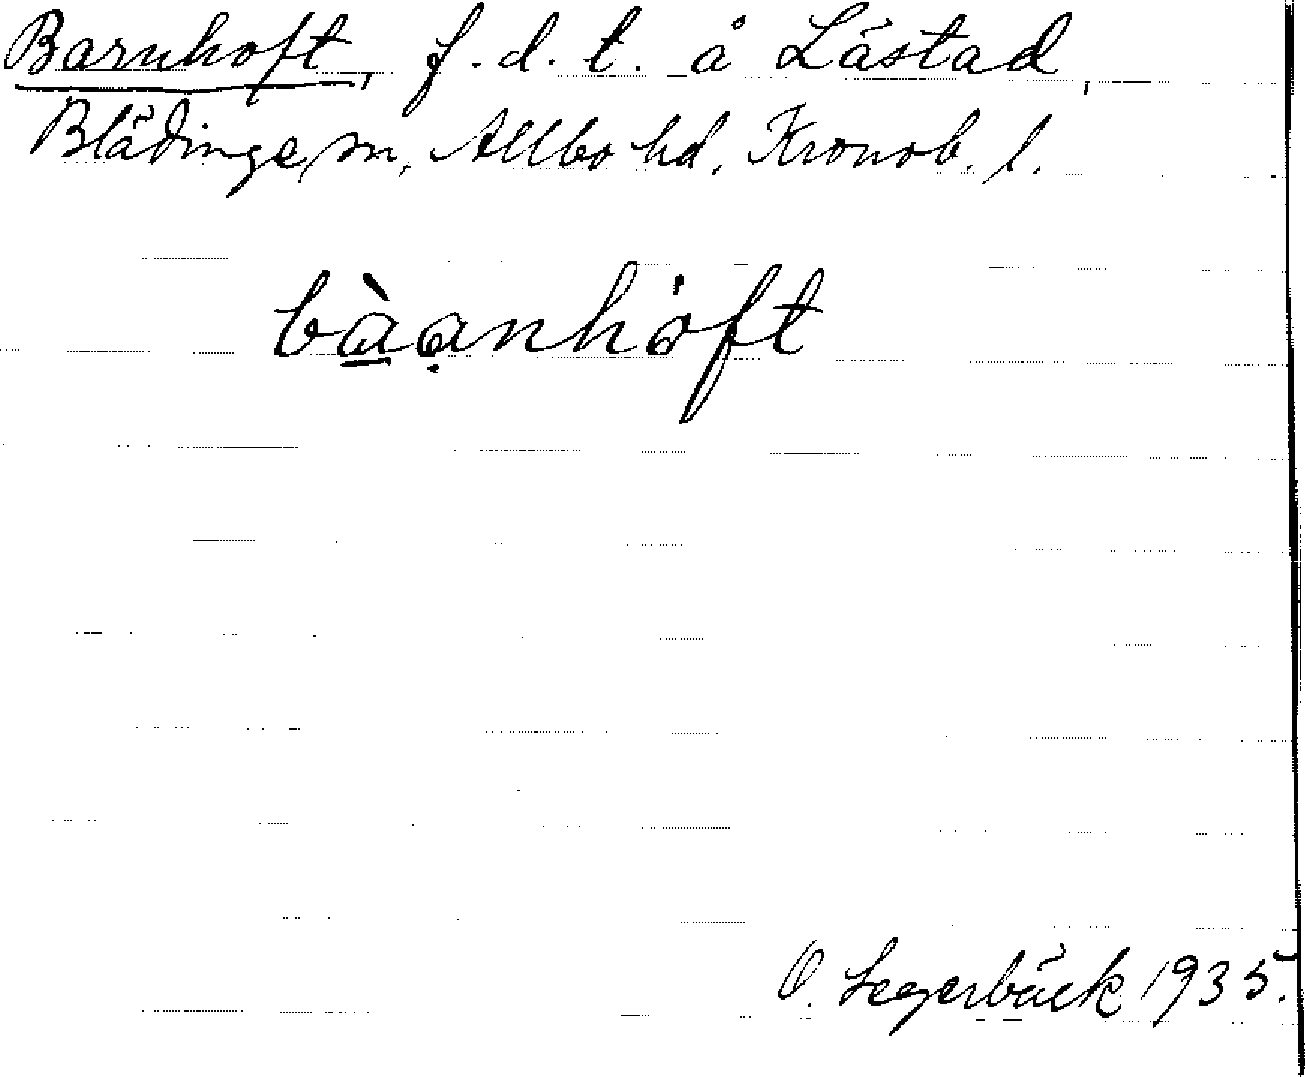 Barnhoft, f.d.t. å Låstad,
Blädinge sn, Allbo hd, Kronob. l.
bàanhȯft
O. Segerbäck 1935.